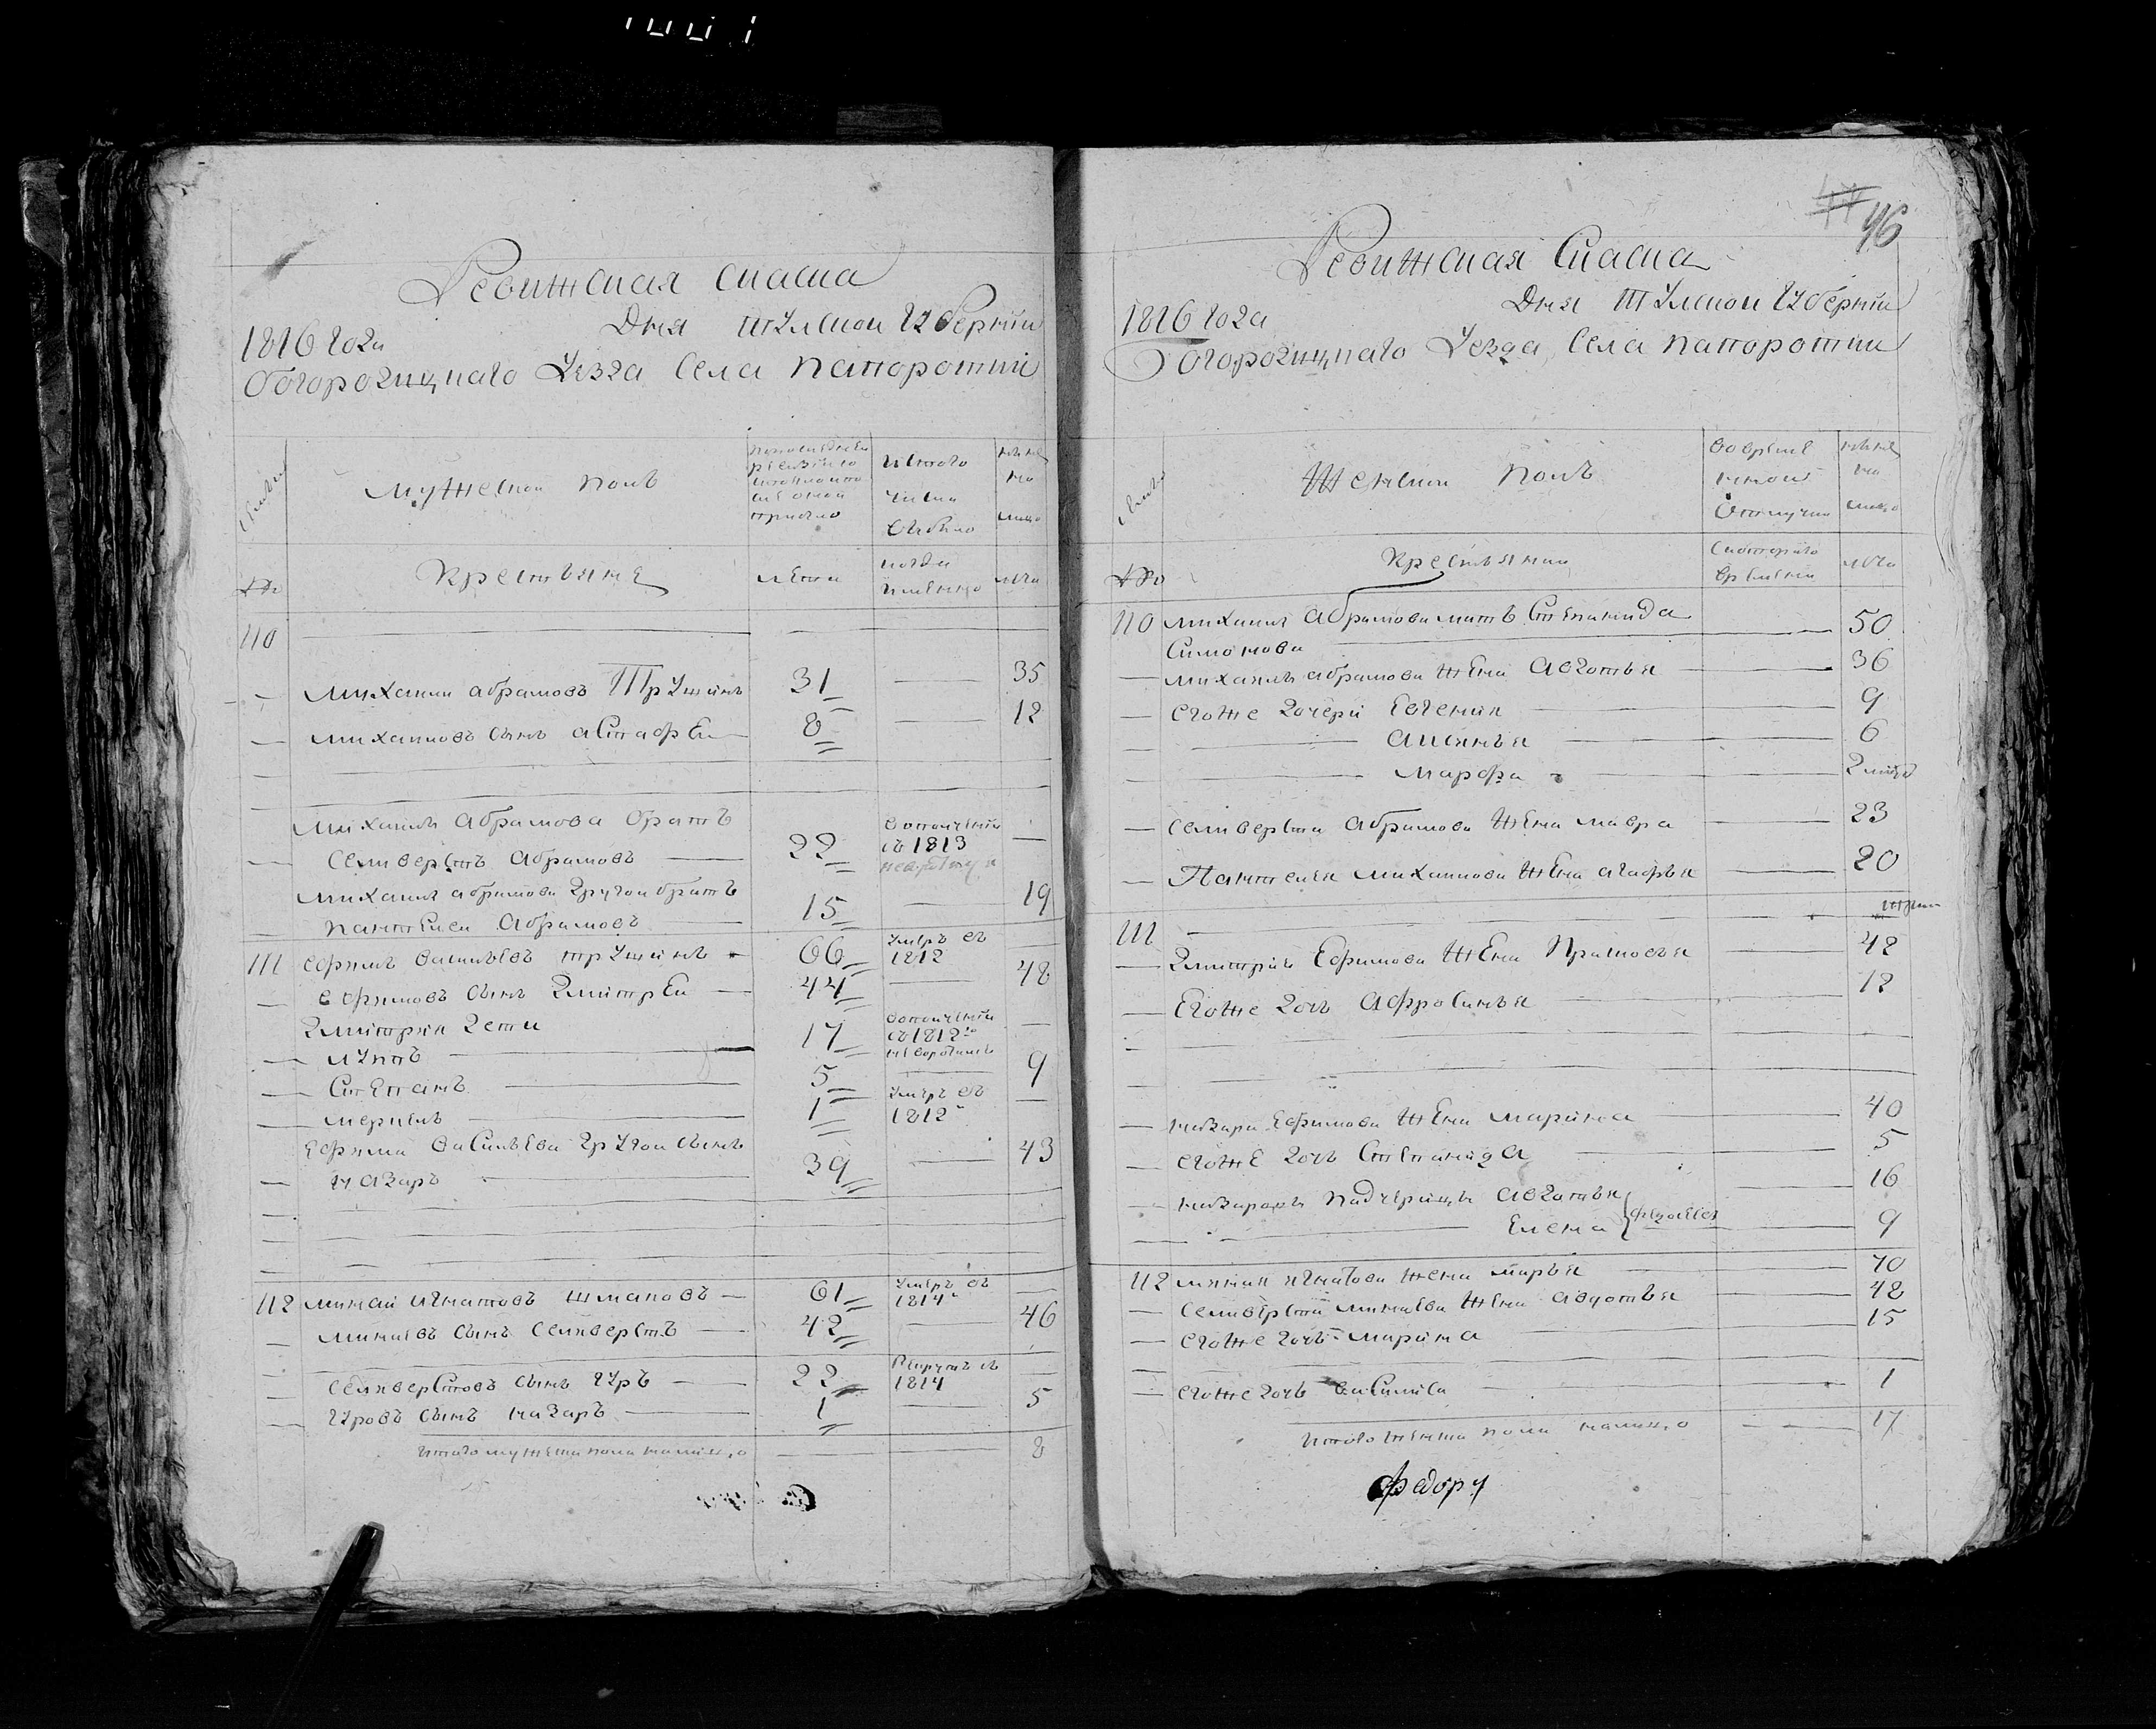 Ревижская скаска
1816 года Дня Тулской губернии
богородицкаго уезда села папоротки
мужескои полъ
и стого
числа
выбыло
на
лицо
№
крестьяне
лета
когда
имянно
лета
110
михаила абрамовъ Трушинъ 31 35
михаиловъ сынъ астафеи 8 12
михаила абрамова братъ
селиверстъ абрамовъ 22 въ 1813
михаила абрамова другои братъ
пантелеи абрамовъ 15 19
111 ефимъ васильевъ трушинъ 66 умеръ въ 1812
ефимовъ сынъ дмитреи 44 48
дмитрия дети
лупъ 17 въ 1812
степанъ 5 9
меркелъ 1 умеръ въ 1812
ефима васильева другои сынъ
назаръ 39 43
112 минаи игнатовъ шмаковъ 61 умеръ въ 1814
минаевъ сынъ селиверстъ 42 46
селиверстовъ сынъ гуръ 22 рекрутъ въ 1814
гуровъ сынъ назаръ 1 5
итого мужеска пола налицо 8
46
Ревижская Скаска
1816 года Дня Тулскои губернии
Богородицкаго уезда села папоротки
Женскои полъ
во время
отлучки
на
лицо
№
крестьянки
с которого
времяни
лета
110 михаила абрамова мать степанида 50
симонова
михаила абрамова жена авдотья 36
его же дочери евгения 9
аксинья 6
марфа 2
селиверста абрамова жена мавра 23
Пантелея михаилова жена агафья 20
111
дмитрия ефимова жена прасковья 42
его же дочь афросинья 12
назара ефимова жена марина 40
его же дочь степанида 5
назаровы падчерицы авдотья 16
елена 9
112 миная игнатова жена марья 70
селиверста минаева жена авдотья 48
его же дочь марина 15
его же дочь василиса 1
итого женска пола налицо 17
Федору